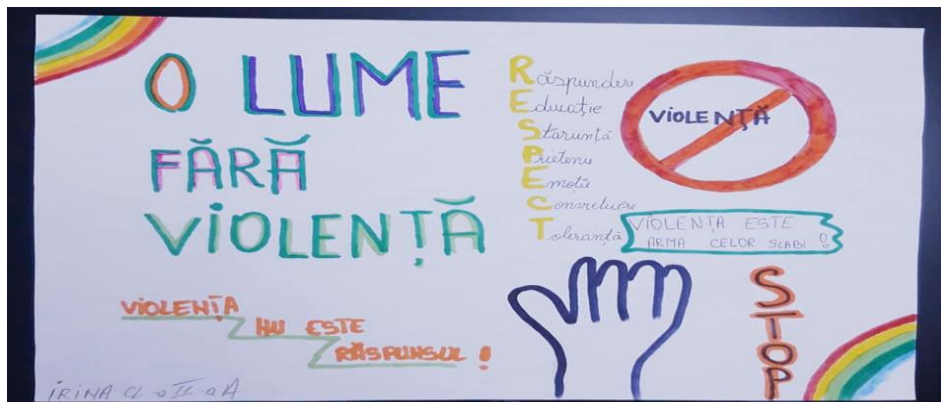 O LUME
FĂRĂ
VIOLENȚĂ
Răspundere
Educație
Prietenie
Emoție
Toleranță
VIOLENȚĂ
VIOLENȚA ESTE
ARMA CELOR SLABI !
VIOLENȚA
NU ESTE
RĂSPUNSUL !
STOP
IRINA CL a II a A